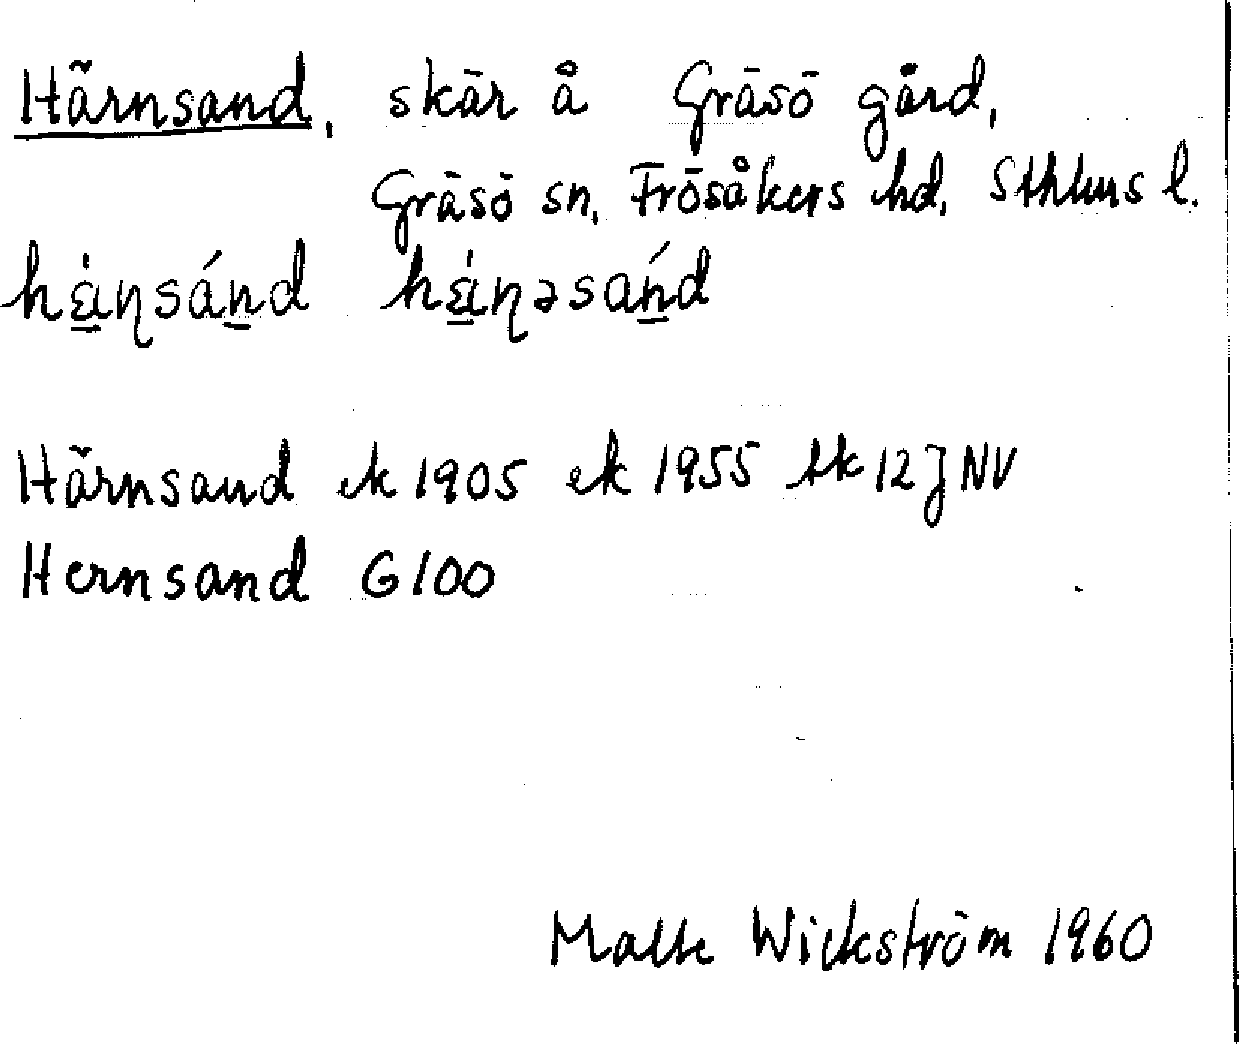 Härnsand, skär å Gräsö gård,
Gräsö sn, Frösåkers hd, Sthlms l.
hä̀ɳsánd hä̀ɳəsánd
Härnsand ek 1905 ek 1955 tk 12J NV
Hernsand G100
Malte Wickström 1960